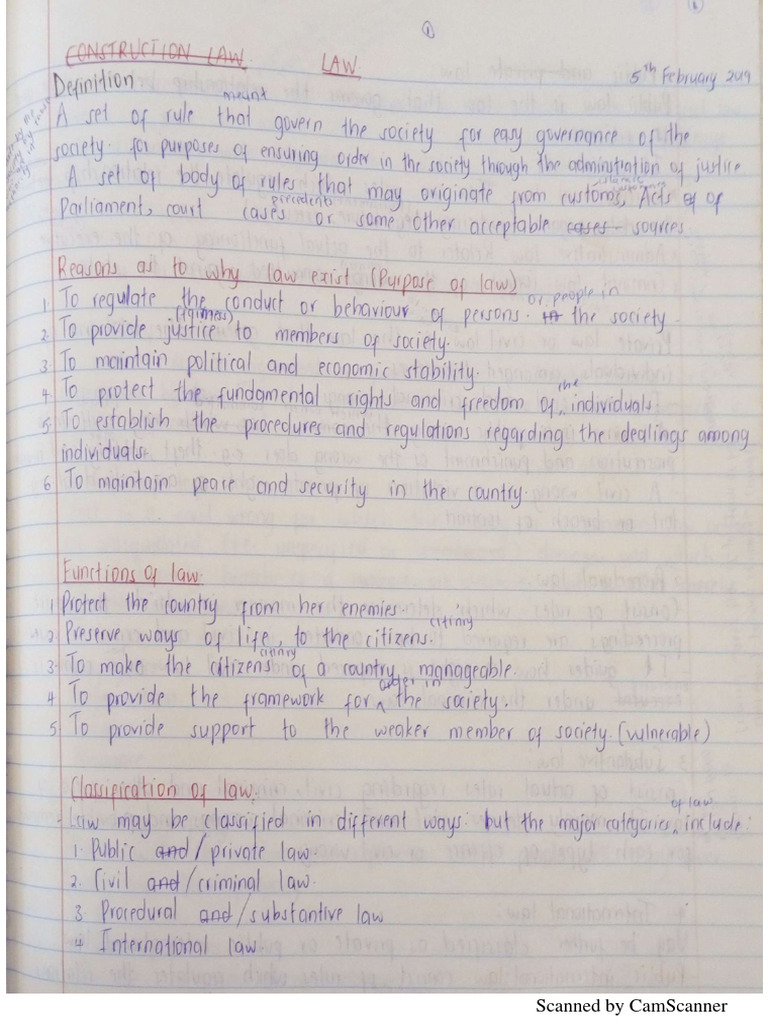 1
CONSTRUCTION LAW. LAW.
5th February 2019
Definition
A set of rule that meant govern the society for easy governance of the
society. for purposes of ensuring order in the society through the administration of justice
A set of body of rules that may originate from customs, Acts of of
Parliament, court cases precedents or some other acceptable cases sources
Reasons as to why law exist (Purpose of law)
1. To regulate the conduct or behaviour of persons. or people in the society.
2. To provide justice (fairness) to members of society.
3. To maintain political and economic stability.
4. To protect the fundamental rights and freedom of the individuals.
5. To establish the procedures and regulations regarding the dealings among
individuals.
6. To maintain peace and security in the country.
Functions of law.
1 Protect the country from her enemies.
2. Preserve ways of life, to the citizens. citinry
3. To make the citizens citinry of a country manageable.
4 To provide the framework for order in the society.
5. To provide support to the weaker member of society. (vulnerable)
Classification of law.
- Law may be classified in different ways: but the major categories of law, include:
1. Public and/private law.
2. Civil and/criminal law.
3 Procedural and/substantive law
4 International law.
Scanned by CamScanner